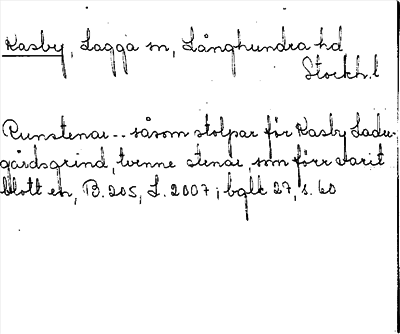 Kasby, Lagga sn, Långhundra hd
Stockh. l
Runstenar -- såsom stolpar för Kasby Ladu-
gårdsgrind, tvenne stenar, som förr varit
blott en, B. 205, L. 2007; bglk 27, s. 60